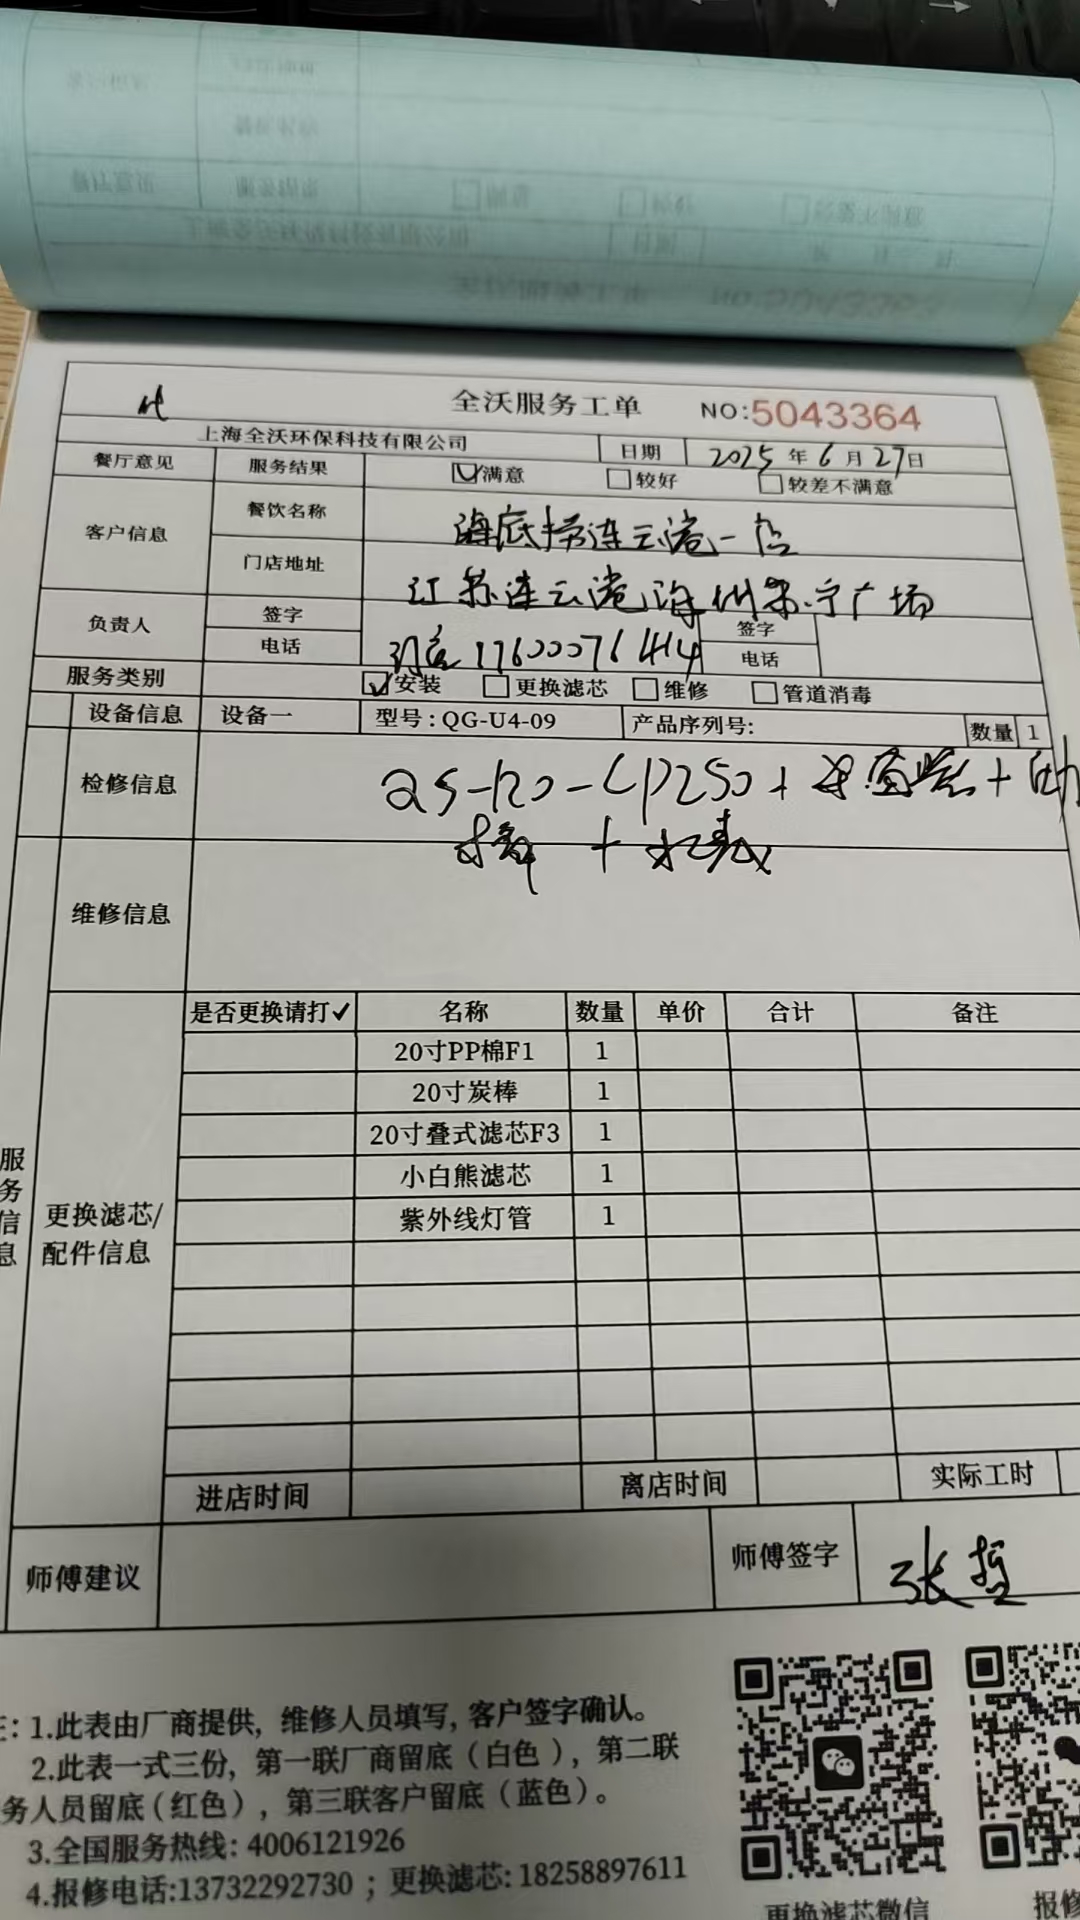 全沃服务工单 NO:5043364
上海全沃环保科技有限公司 日期 2025年6月27日
餐厅意见 服务结果 满意 较好 较差不满意
客户信息 餐饮名称 海底捞连云港一店
门店地址 江苏连云港海州苏宁广场
负责人 签字 签字
电话 17600076414 电话
服务类别 安装 更换滤芯 维修 管道消毒
设备信息 设备一 型号:QG-U4-09 产品序列号: 数量 1
检修信息
维修信息
服务信息
更换滤芯/配件信息
是否更换请打✓ 名称 数量 单价 合计 备注
20寸PP棉F1 1
20寸炭棒 1
20寸叠式滤芯F3 1
小白熊滤芯 1
紫外线灯管 1
进店时间 离店时间 实际工时
师傅建议 师傅签字 张
1.此表由厂商提供, 维修人员填写, 客户签字确认。
2.此表一式三份, 第一联厂商留底(白色), 第二联
务人员留底(红色), 第三联客户留底(蓝色)。
3.全国服务热线: 4006121926
4.报修电话:13732292730 ; 更换滤芯: 18258897611
更换滤芯微信
报修